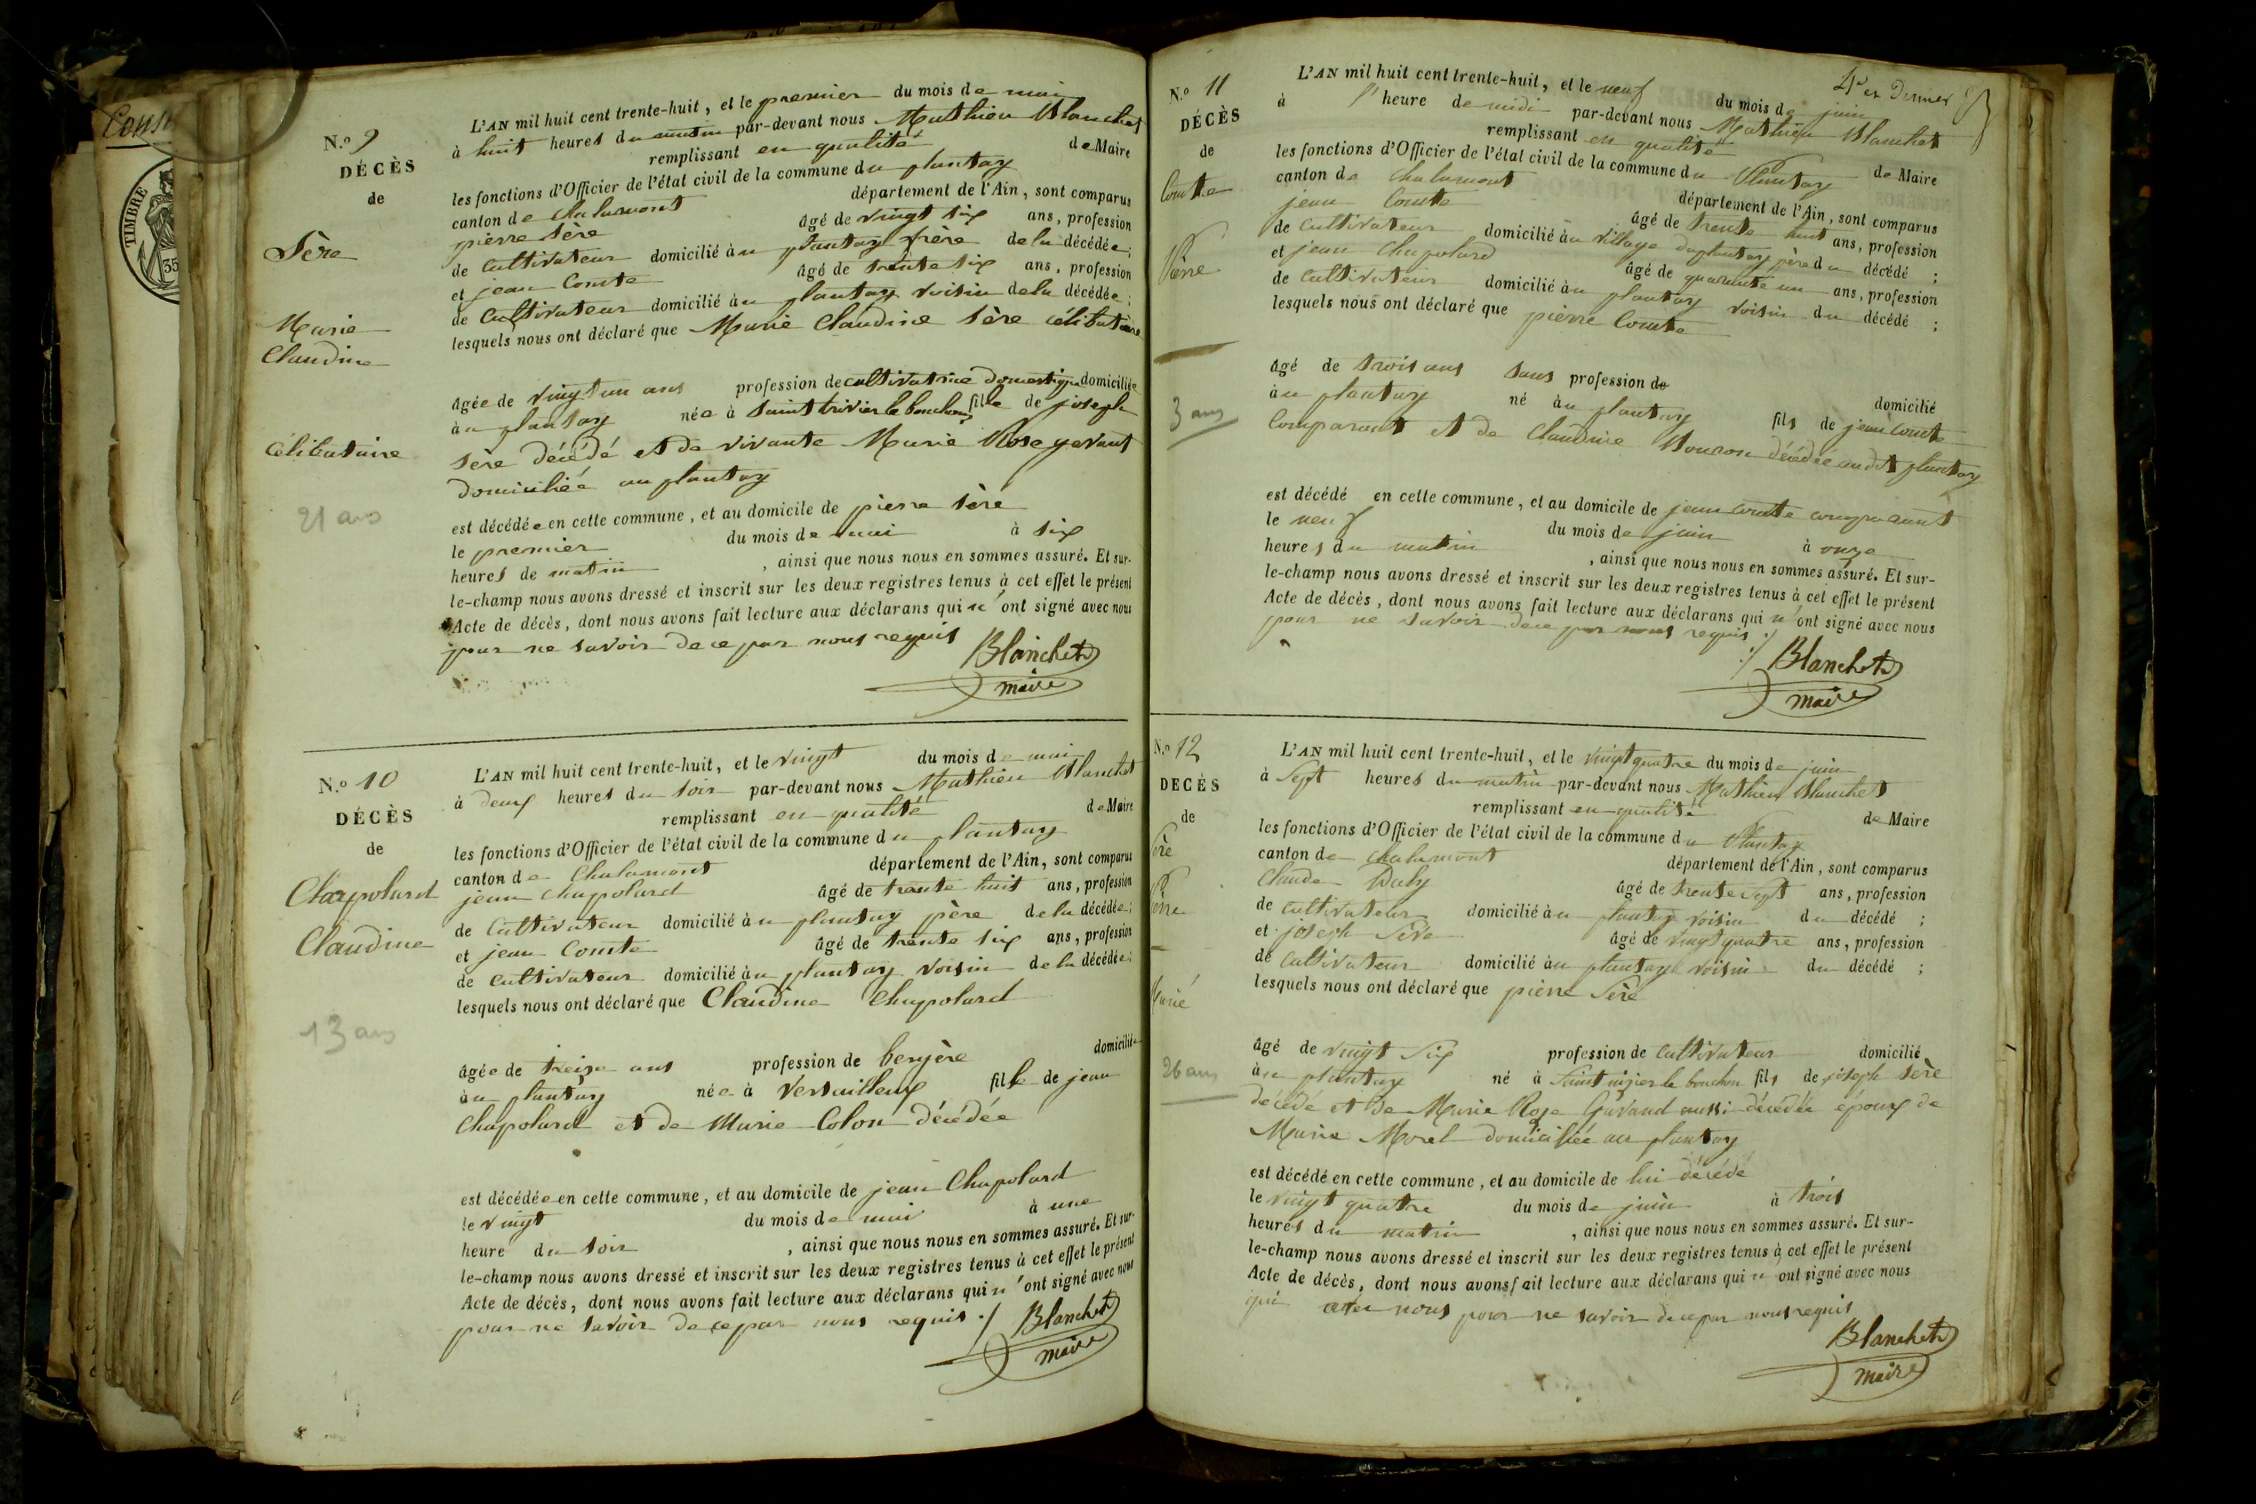 Cons
TIMBRE
35
N.º 9
DÉCÈS
de
Sère
Marie
Claudine
Célibataire
21 ans
L'AN mil huit cent trente-huit, et le premier du mois de mai
à huit heures du matin par-devant nous Mathieu Blanchet
remplissant en qualité de Maire
les fonctions d'Officier de l'état civil de la commune du plantay
canton de Chalamont département de l'Ain, sont comparus
pierre Sère âgé de vingt six ans, profession
de Cultivateur domicilié au plantay frère de la décédée ;
et jean Comte âgé de trente six ans, profession
de Cultivateur domicilié au plantay voisin de la décédée ;
lesquels nous ont déclaré que Marie Claudine Sère célibataire
âgée de vingt un ans profession de cultivatrice domestique domiciliée
au plantay née à Saint trivier le bouchoux fille de joseph
Sère décédé et de vivante Marie Rose gevant
domiciliée au plantay
est décédée en cette commune, et au domicile de pierre Sère
le premier du mois de mai à six
heures de matin , ainsi que nous nous en sommes assuré. Et sur-
le-champ nous avons dressé et inscrit sur les deux registres tenus à cet effet le présent
Acte de décès, dont nous avons fait lecture aux déclarans qui n'ont signé avec nous
pour ne savoir de ce par nous requis
Blanchet
maire
N.º 10
DÉCÈS
de
Chapolard
Claudine
13 ans
L'AN mil huit cent trente-huit, et le vingt du mois de mai
à deux heures du soir par-devant nous Mathieu Blanchet
remplissant en qualité de Maire
les fonctions d'Officier de l'état civil de la commune du plantay
canton de Chalamont département de l'Ain, sont comparus
jean Chapolard âgé de trente huit ans, profession
de Cultivateur domicilié au plantay père de la décédée ;
et jean Comte âgé de trente six ans, profession
de cultivateur domicilié au plantay voisin de la décédée ;
lesquels nous ont déclaré que Claudine Chapolard
âgée de treize ans profession de bergère domiciliée
au plantay née à Versailleux fille de jean
Chapolard et de Marie Colon décédée
est décédée en cette commune, et au domicile de jean Chapolard
le vingt du mois de mai à une
heure du soir , ainsi que nous nous en sommes assuré. Et sur-
le-champ nous avons dressé et inscrit sur les deux registres tenus à cet effet le présent
Acte de décès, dont nous avons fait lecture aux déclarans qui n'ont signé avec nous
pour ne savoir de ce par nous requis ./
Blanchet
maire
4e et Dernier
N.º 11
DÉCÈS
de
Comte
Pierre
3 ans
L'AN mil huit cent trente-huit, et le neuf du mois de juin
à l'heure de midi par-devant nous Mathieu Blanchet
remplissant en qualité de Maire
les fonctions d'Officier de l'état civil de la commune du Plantay
canton de Chalamont département de l'Ain, sont comparus
jean Comte âgé de trente huit ans, profession
de Cultivateur domicilié au village du plantay père du décédé ;
et jean Chapolard âgé de quarante un ans, profession
de Cultivateur domicilié au plantay voisin du décédé ;
lesquels nous ont déclaré que pierre Comte
âgé de trois ans sans profession de domicilié
au plantay né au plantay fils de jean Comte
Comparant et de Claudine Bouron décédée audit plantay
est décédé en cette commune, et au domicile de jean Comte comparant
le neuf du mois de juin à onze
heures du matin , ainsi que nous nous en sommes assuré. Et sur-
le-champ nous avons dressé et inscrit sur les deux registres tenus à cet effet le présent
Acte de décès, dont nous avons fait lecture aux déclarans qui n'ont signé avec nous
pour ne savoir de ce par nous requis ./
Blanchet
maire
N.º 12
DÉCÈS
de
Sère
Pierre
Marié
26 ans
L'AN mil huit cent trente-huit, et le vingt quatre du mois de juin
à Sept heures du matin par-devant nous Mathieu Blanchet
remplissant en qualité de Maire
les fonctions d'Officier de l'état civil de la commune du Plantay
canton de Chalamont département de l'Ain, sont comparus
Claude Daby âgé de trente Sept ans, profession
de cultivateur domicilié au plantay voisin du décédé ;
et joseph Sère âgé de vingt quatre ans, profession
de Cultivateur domicilié au plantay voisin du décédé ;
lesquels nous ont déclaré que pierre Sère
âgé de vingt Six profession de Cultivateur domicilié
au plantay né à Saint nizier le bouchou fils de joseph Sère
décédé et de Marie Rose Gavand aussi décédée époux de
Marie Morel domiciliée au plantay
est décédé en cette commune, et au domicile de lui décédé
le vingt quatre du mois de juin à trois
heures du matin , ainsi que nous nous en sommes assuré. Et sur-
le-champ nous avons dressé et inscrit sur les deux registres tenus à cet effet le présent
Acte de décès, dont nous avons fait lecture aux déclarans qui n ont signé avec nous
avec nous pour ne savoir de ce par nous requis
Blanchet
maire